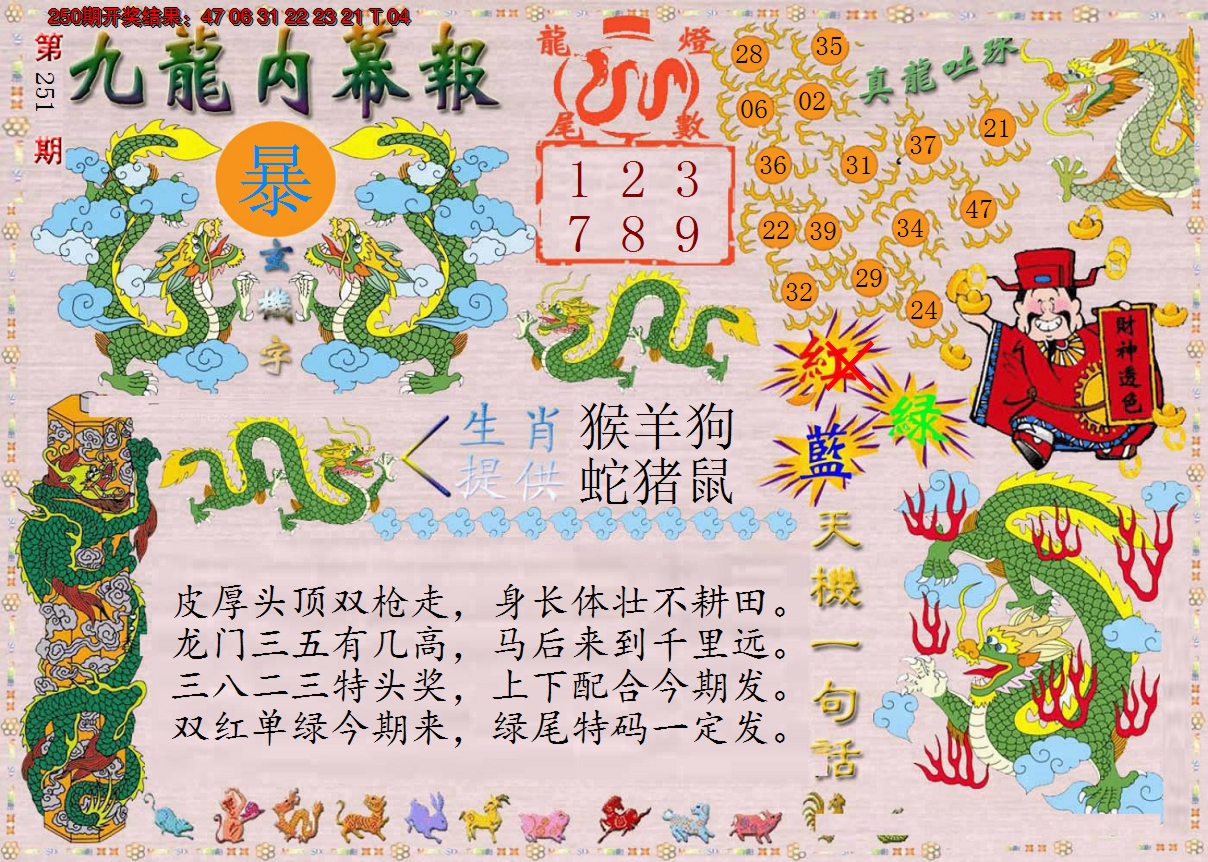 250期开奖结果：47 06 31 22 23 21 T 04
第251期
九龍内幕報
暴
玄機字
龍燈
尾數
1 2 3
7 8 9
真龍吐珠
28 35
06 02
36 31 37 21
22 39 34 47
32 29 24
財神透色
紅
绿
藍
生肖 猴羊狗
提供 蛇猪鼠
天機一句话
皮厚头顶双枪走，身长体壮不耕田。
龙门三五有几高，马后来到千里远。
三八二三特头奖，上下配合今期发。
双红单绿今期来，绿尾特码一定发。